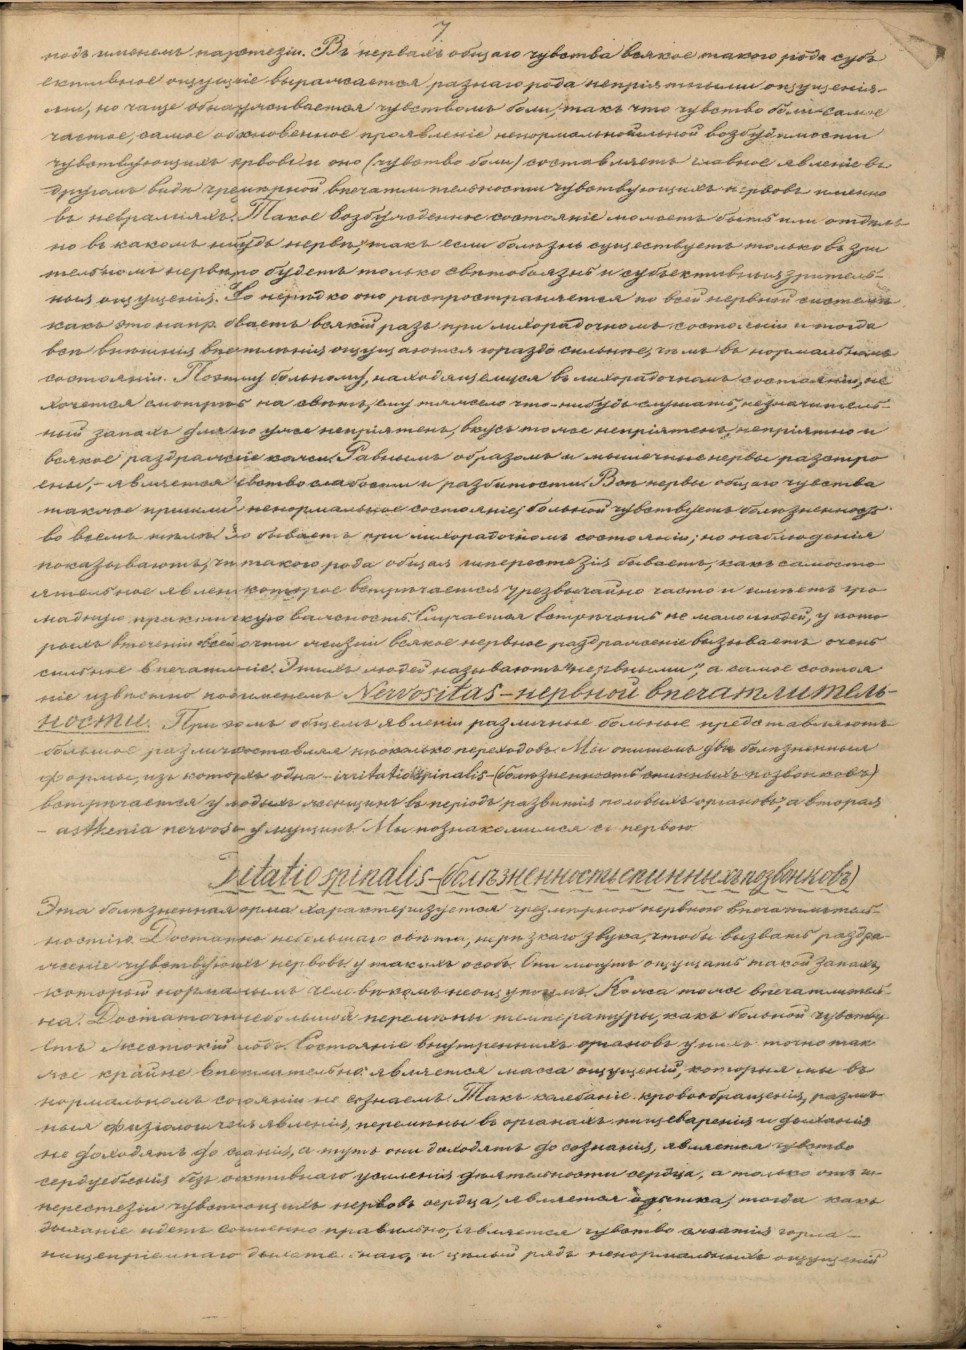 7
подъ именемъ парэстезіи. Въ нервахъ общаго чувства всякое такого рода субъ
ективное ощущеніе выражается разнаго рода непріятными ощущенія-
ми, но чаще обнаруживается чувствомъ боли, такъ что чувство боли самое
частое, самое обыкновенное проявленіе возбудимости
чувствующихъ нервовъ и оно (чувство боли) составляетъ главное явленіе въ
другомъ видѣ чрезмѣрной впечатлительности чувствующихъ нервовъ именно
въ невралгіяхъ. Такое возбужденное состояніе можетъ быть или отдѣль
но въ какомъ нибудь нервѣ, такъ если болѣзнь существуетъ только въ зри
тельномъ нервѣ, то будетъ только свѣтобоязнь и субъективныя зритель-
ныя ощущенія. Но нерѣдко оно распространяется по всей нервной системѣ
какъ это напр. бываетъ всякій разъ при лихорадочномъ состояніи и тогда
всѣ внѣшнія впечатлѣнія ощущаются гораздо сильнѣе, чѣмъ въ нормальномъ
состояніи. Поэтому больному, находящемуся въ лихорадочномъ состояніи, не
хочется смотрѣть на свѣтъ, ему тяжело что-нибудь слушать, незначитель-
ный запахъ для него уже непріятенъ, вкусъ тоже непріятенъ, непріятно и
всякое раздраженіе кожи. Равнымъ образомъ и мышечные нервы разстро
ены, – является чувство слабости и разбитости. Всѣ нервы общаго чувства
также пришли въ ненормальное состояніе; больной чувствуетъ болѣзненность
во всемъ тѣлѣ. Это бываетъ при лихорадочномъ состояніи; но наблюденія
показываютъ, что такого рода общая гиперестезія бываетъ, какъ самосто
ятельное явленіе которое встрѣчается чрезвычайно часто и имѣетъ гро
мадную практическую важность. Случается встрѣчать не мало людей, у кото
рыхъ втеченіи всей жизни всякое нервное раздраженіе вызываетъ очень
сильное впечатлѣніе. Этихъ людей называютъ "нервными", а самое состоя
ніе извѣстно подъ именемъ Nervositas – нервной впечатлитель-
ности. При этомъ общемъ явленіи различные больные представляютъ
большое различіе составляя нѣсколько переходовъ. Мы опишемъ двѣ болѣзненныя
формы, изъ которыхъ одна – irritatio spinalis – (болѣзненность спинныхъ позвонковъ)
встрѣчается у молодыхъ женщинъ въ періодъ развитія половыхъ органовъ, а вторая
– asthenia nervosa – у мущинъ. Мы познакомимся съ первою
Irritatio spinalis – (болѣзненность спинныхъ позвонковъ)
Эта болѣзненная форма характеризуется чрезмѣрною нервною впечатлитель-
ностію. Достаточно небольшаго свѣта, нерѣзкаго звука, чтобы вызвать раздра-
женіе чувствующихъ нервовъ у такихъ особъ. Они могутъ ощущать такой запахъ,
который нормальнымъ человѣкомъ неощутимъ. Кожа тоже впечатлитель-
на. Достаточно небольшой перемѣны температуры, какъ больной чувству-
етъ жестокій ознобъ. Состояніе внутреннихъ органовъ у нихъ точно так
же крайне впечатлительно: является масса ощущеній, которыя мы въ
нормальномъ состояніи не сознаемъ. Такъ колебаніе кровообращенія, различ-
ныя физіологическія явленія, перемѣны въ органахъ пищеваренія и дыханія
не доходятъ до сознанія, а тутъ они доходятъ до сознанія, является чувство
сердцебіенія безъ объективнаго усиленія дѣятельности сердца, а только отъ ги-
перестезіи чувствующихъ нервовъ сердца, является одышка, тогда какъ
дыханіе идетъ совершенно правильно, является чувство сжатія горла –
и цѣлый рядъ ненормальныхъ ощущеній